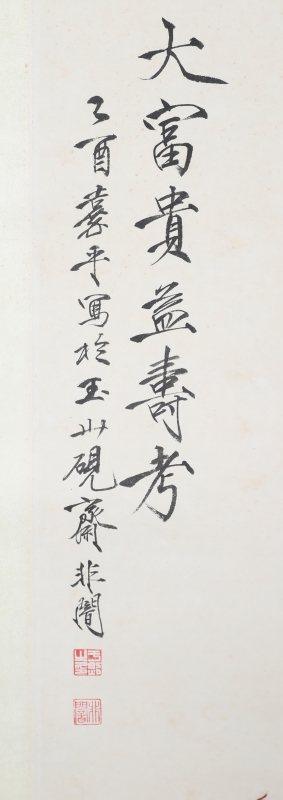 大富貴益壽考
乙酉平寫於玉山硯齋非闇
非闇